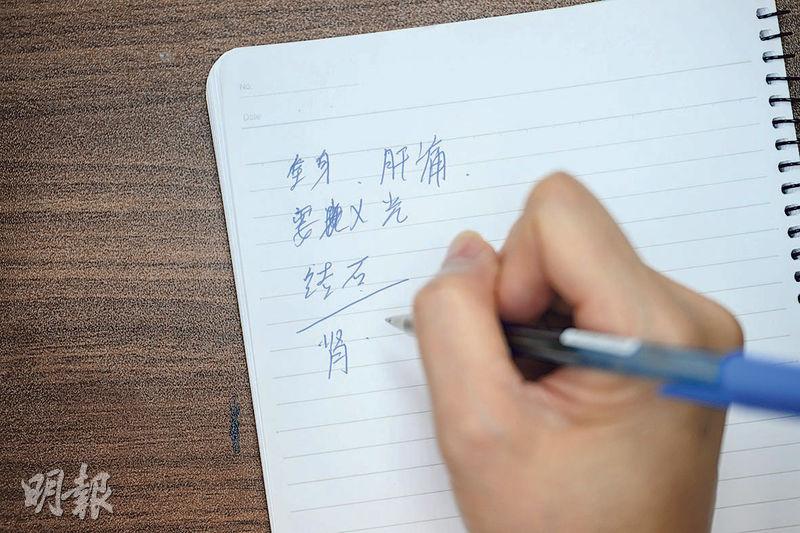 No.
Date
全身、肝痛.
要 X光
结石
肾.
明報